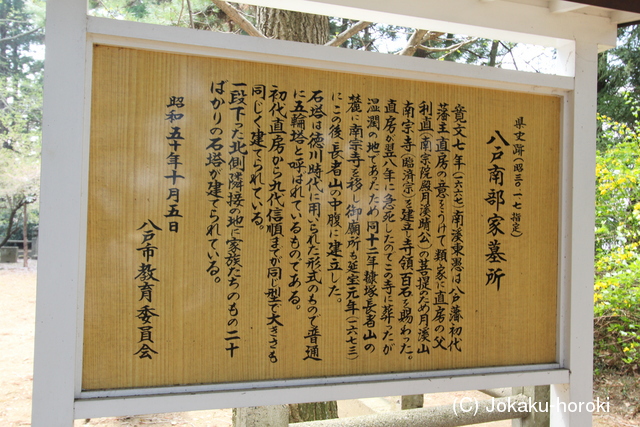 県史跡(昭五〇・一・七指定)
八戸南部家墓所
寛文七年(一六六七)南溪東愚は八戸藩初代
藩主直房の意をうけて類家に直房の父
利直(南宗院殿月溪晴公)の菩提のため月溪山
南宗寺(臨済宗)を建立し寺領百石を賜わった。
直房が翌八年に急死したのでこの寺に葬ったが
湿潤の地であたため同十二年糠塚長者山の
麓に南宗寺を移し御廟所も延宝元年(一六七三)
にこの後、長者山の中腹に建立した。
石塔は徳川時代に用いられた形式のもので普通
に五輪塔と呼ばれているものである。
初代直房から九代信順までが同じ型で大きさも
同じく建てられている。
一段下った北側隣接の地に家族たちのもの二十
ばかりの石塔が建てられている。
昭和五十年十月五日
八戸市教育委員会
(C) Jokaku-horoki